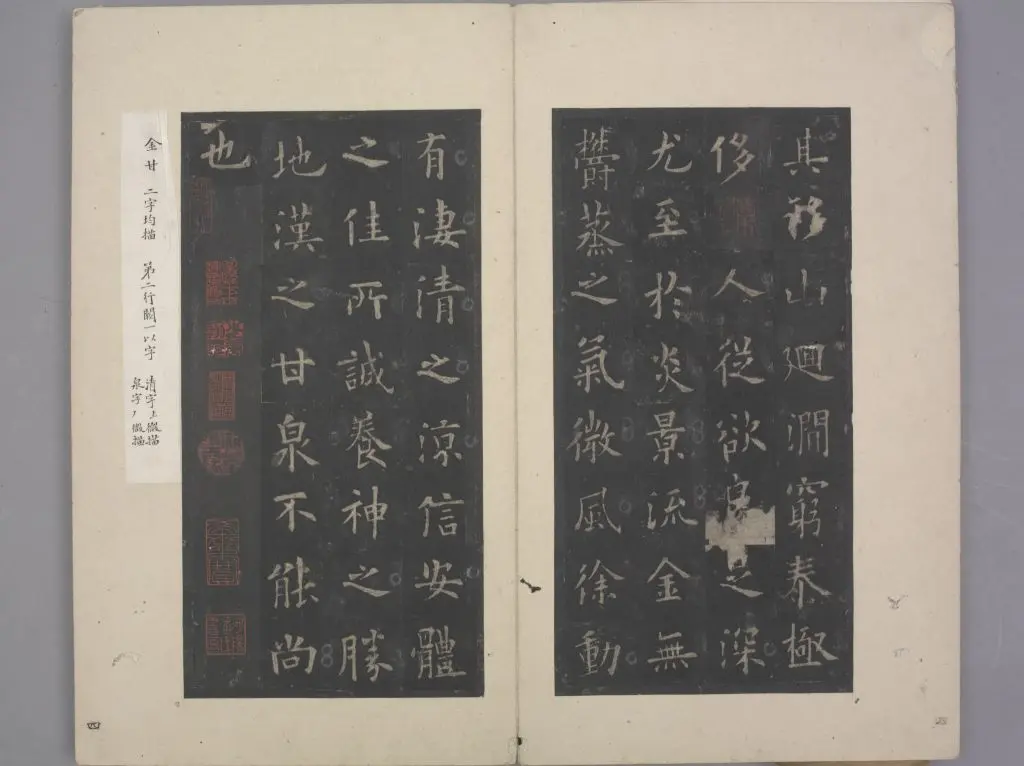 其移山迴澗窮泰極
侈人從欲良足深
尤至於炎景流金無
欝蒸之氣微風徐動
有淒清之涼信安體
之佳所誠養神之勝
地漢之甘泉不能尚
也
金甘 二字均描 第二行闕一以字
清字上微描
泉字丿微描
四